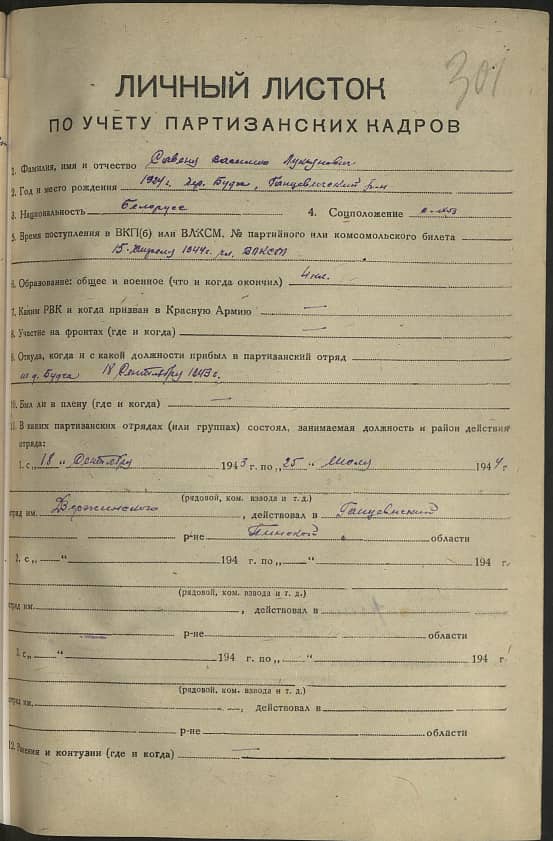 301
ЛИЧНЫЙ ЛИСТОК
ПО УЧЕТУ ПАРТИЗАНСКИХ КАДРОВ
1. Фамилия, имя и отчество Василию
2. Год и место рождения 1924 г. Будча, Ганцевичский р-н
3. Национальность белорусс 4. Соцположение
5. Время поступления в ВКП(б) или ВЛКСМ, № партийного или комсомольского билета
15 1944 г. чл. ВЛКСМ
6. Образование: общее и военное (что и когда окончил) 4 кл.
7. Каким РВК и когда призван в Красную Армию —
8. Участие на фронтах (где и когда) —
9. Откуда, когда и с какой должности прибыл в партизанский отряд
из д. Будча 18 Сентября 1943 г.
10. Был ли в плену (где и когда) —
11. В каких партизанских отрядах (или группах) состоял, занимаемая должность и район действия
отряда:
1. с „18 „ Сентября 1943 г. по „25 „ Июля 1944 г
(рядовой, ком. взвода и т. д.)
отряд им. Дзержинского, действовал в Ганцевичский
р-не Пинской области
2. с „ — “ 194 г. по „ — “ 194 г
(рядовой, ком. взвода и т. д.)
отряд им. , действовал в
р-не области
3. с „ — “ 194 г. по „ — “ 194 г
(рядовой, ком. взвода и т. д.)
отряд им. , действовал в
р-не области
12. Ранения и контузии (где и когда) —